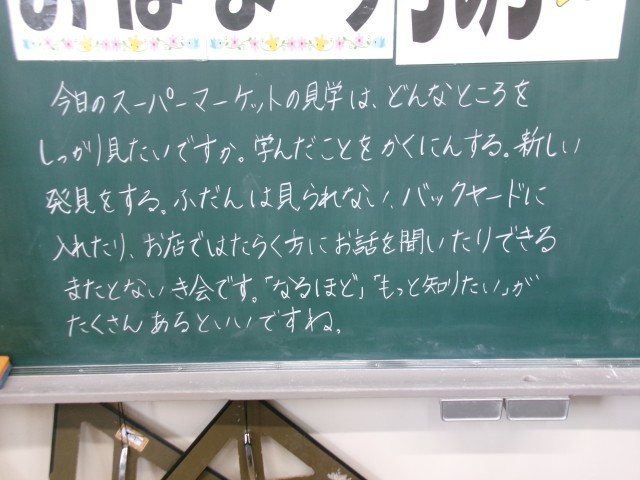 今日のスーパーマーケットの見学は、どんなところを
しっかり見たいですか。学んだことをかくにんする。新しい
発見をする。ふだんは見られない、バックヤードに
入れたり、お店ではたらく方にお話を聞いたりできる
またとないき会です。「なるほど」「もっと知りたい」が
たくさんあるといいですね。